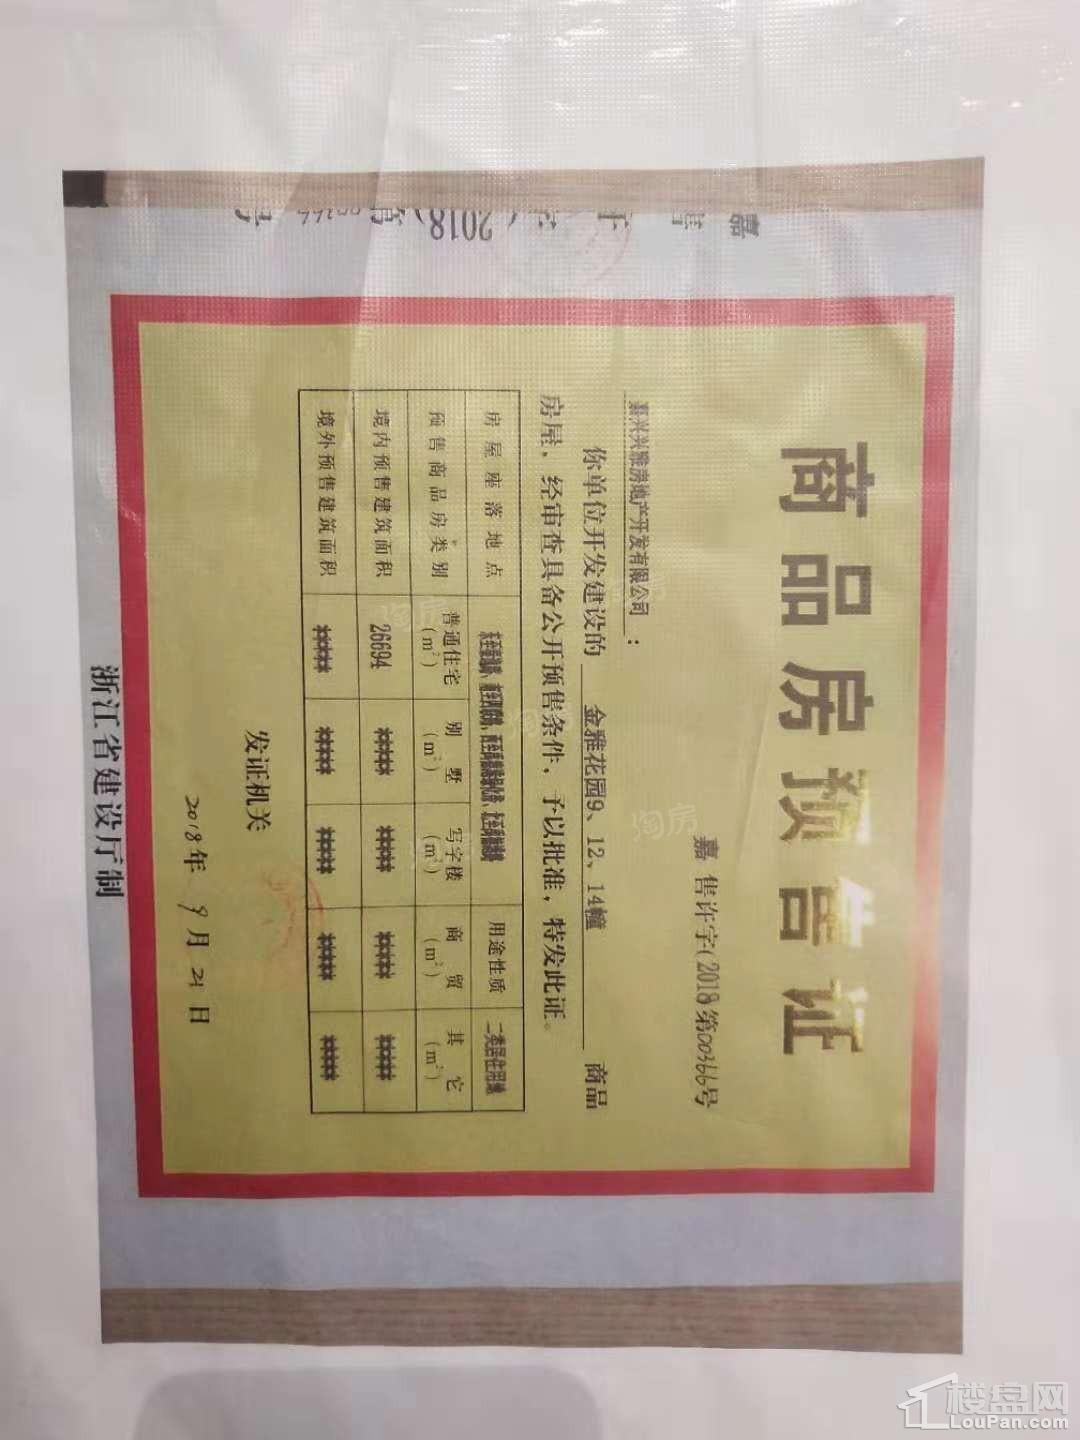 嘉售许字(2018)第00366号
商品房预售证
嘉售许字(2018第00366号
嘉兴兴雅房地产开发有限公司：
你单位开发建设的 金雅花园9、12、14幢 商品
房屋，经审查具备公开预售条件，予以批准，特发此证。
房屋座落地点 用途性质 二类居住用地
预售商品房类别 普通住宅(m²) 别墅(m²) 写字楼(m²) 商贸(m²) 其它(m²)
境内预售建筑面积 26694 **** **** **** ****
境外预售建筑面积 **** **** **** **** ****
发证机关
2018年9月21日
浙江省建设厅制
淘房
楼盘网
LouPan.com